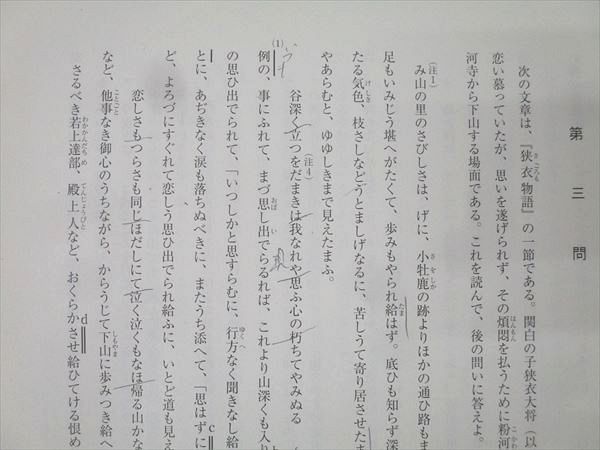 第三問
次の文章は、『狭衣物語』の一節である。関白の子狭衣大将（以
恋い慕っていたが、思いを遂げられず、その煩悶を払うために粉河
河寺から下山する場面である。これを読んで、後の問いに答えよ。
み山の里のさびしさは、げに、小牡鹿の跡よりほかの通ひ路もま
足もいみじう堪へがたくて、歩みもやられ給はず。底ひも知らず深
たる気色、枝さしなどうとましげなるに、苦しうて寄り居させたま
やあらむと、ゆゆしきまで見えたまふ。
谷深く立つをだまきは我なれや思ふ心の朽ちてやみぬる
例の、事にふれて、まづ思し出でらるれば、これより山深くも入り
の思ひ出でられて、「いつしかと思すらむに、行方なく聞きなし給
とに、あぢきなく涙も落ちぬべきに、またうち添へて、「思はずに
ど、よろづにすぐれて恋しう思ひ出でられ給ふに、いとど道も見え
恋しさもつらさも同じほだしにて泣く泣くもなほ帰る山かな
など、他事なき御心のうちながら、からうじて下山に歩みつき給へ
さるべき若上達部、殿上人など、おくらかさせ給ひてける恨め